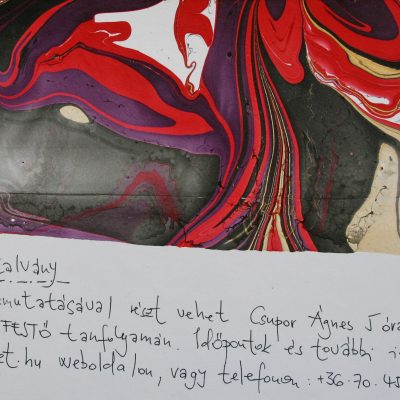 alvány
mutatásával részt vehet Csupor Ágnes 5 óra
FESTŐ tanfolyamán. Időpontok és további i
et.hu weboldalon, vagy telefonon: +36.70.45